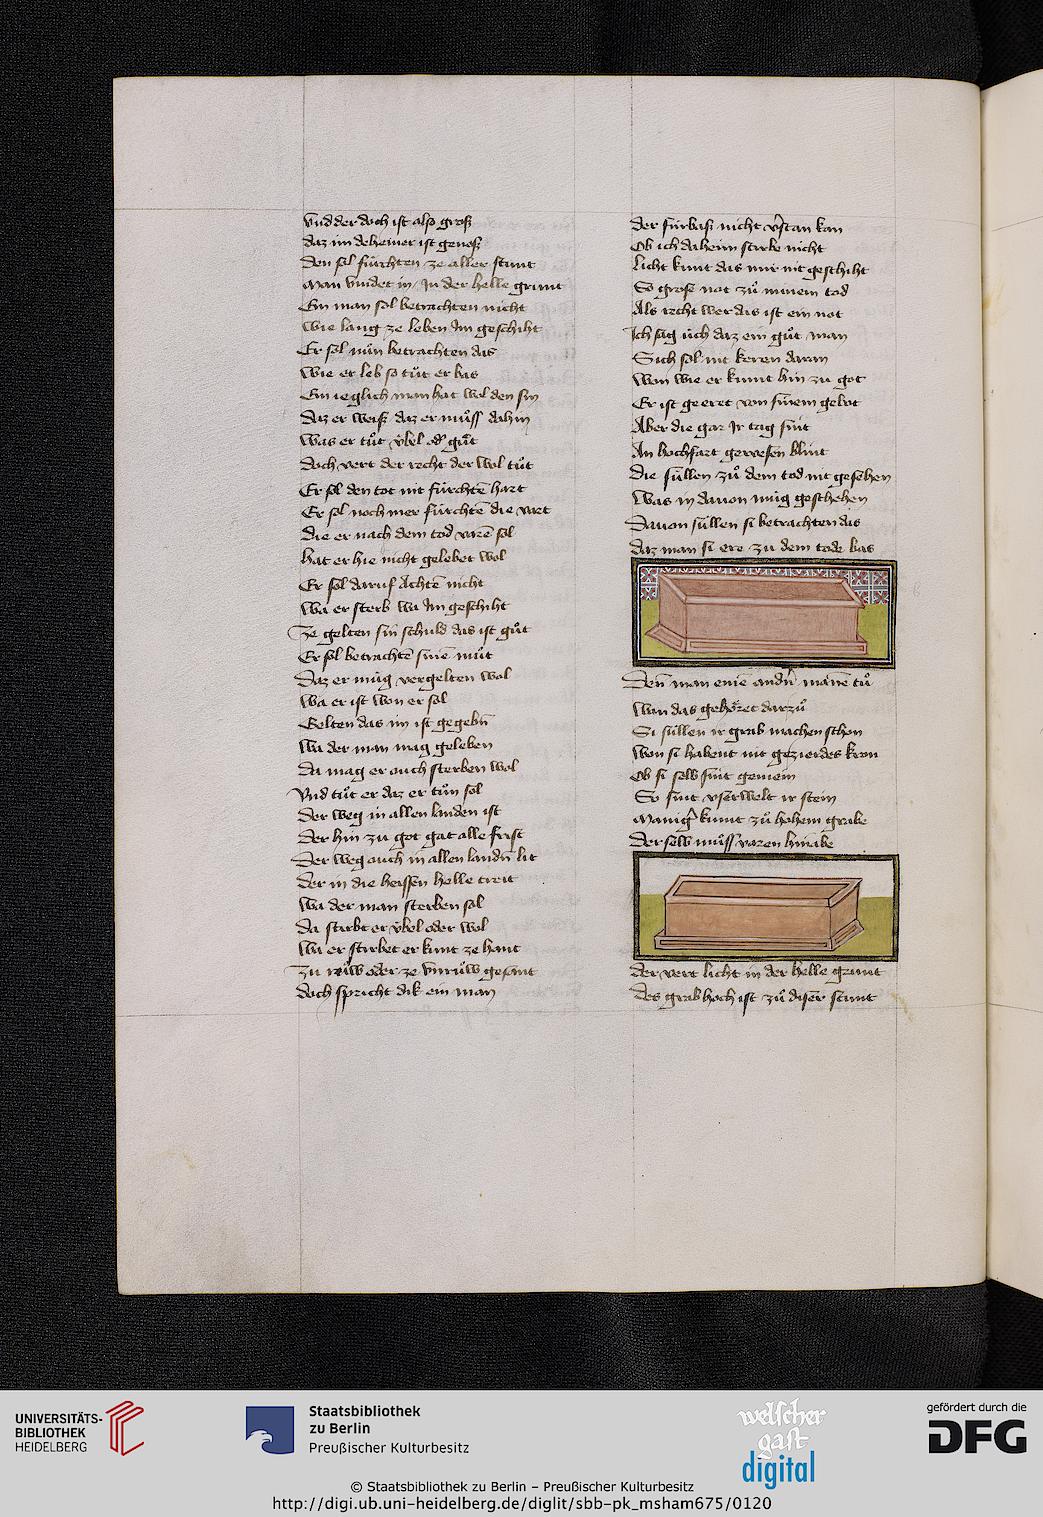 vnd der doch ist also groß
daz im deheiner ist genoß
den sol fürchten ze aller stunt
Man vindet in / Jn der helle grunt
Ein man sol betrachten nicht
Wie lang ze leben Jm geschiht
Er sol nün betrachten das
Wie er leb so tůt er bas
Ein ieglich man hat wol den sin
Daz er weiß daz er můsß dahin
Was er tůt v̈bel od' gůt
doch vert der recht der wol tůt
Er sol den tot nit fürchtē hart
Er sol noch mer fürchtē die vart
die er nach dem tod varē sol
hat er hie nicht gelebet wol
Er sol daruf Achtē nicht
wa er sterb wa Jm geschiht
Ze gelten sin schuld das ist gůt
Er sol betrachtē sinē můt
Daz er müg vergelten wol
Wa er ist won er sol
Gelten das im ist gegebn̄
Wa der man mag geleben
da mag er ouch sterben wol
Vnd tůt er daz er tůn sol
der weg in allen landen ist
der hin zu got gat alle frist
Der weg auch in allen landn̄ lit
der in die heissen helle treit
Wa der man sterben sol
da stirbt er v̈bel oder wol
Wa er stirbet er kunt ze hant
Zu růw oder ze vnrůw gesant
doch spricht dik ein man
der fürbas nicht v'stan kan
Ob ich daheim stirbe nicht
Licht kunt das mir nit geschiht
So grose not zů minem tod
Als recht wer dis ist ein not
Jch sag üch daz ein gůt man
Sich sol nit keren daran
Won wie er kunt hin zu got
Er ist geeret von sinem gebot
Aber die gar Jr tag sint
An hochfart gewesen blint
die süllen zů dem tod nit gesehen
Was in dauon müg geschehen
Dauon süllen si betrachten dis
daz man si ere zu dem tode bas
Den̄ man einē andn̄ manē tů
wan das gehöret darzů
Si süllen ir grab machen schon
Won si habent nit gezierdes kron
Ob si selb sint gemein
So sint vserwelt ir stein
Manig' kunt zů hohem grabe
Der selb můsß varen hinabe
der vert licht in der helle grunt
des grab hoch ist zů diser stunt
UNIVERSITÄTS-
BIBLIOTHEK
HEIDELBERG
Staatsbibliothek
zu Berlin
Preußischer Kulturbesitz
welscher
gast
digital
gefördert durch die
DFG
© Staatsbibliothek zu Berlin – Preußischer Kulturbesitz
http://digi.ub.uni-heidelberg.de/diglit/sbb-pk_msham675/0120